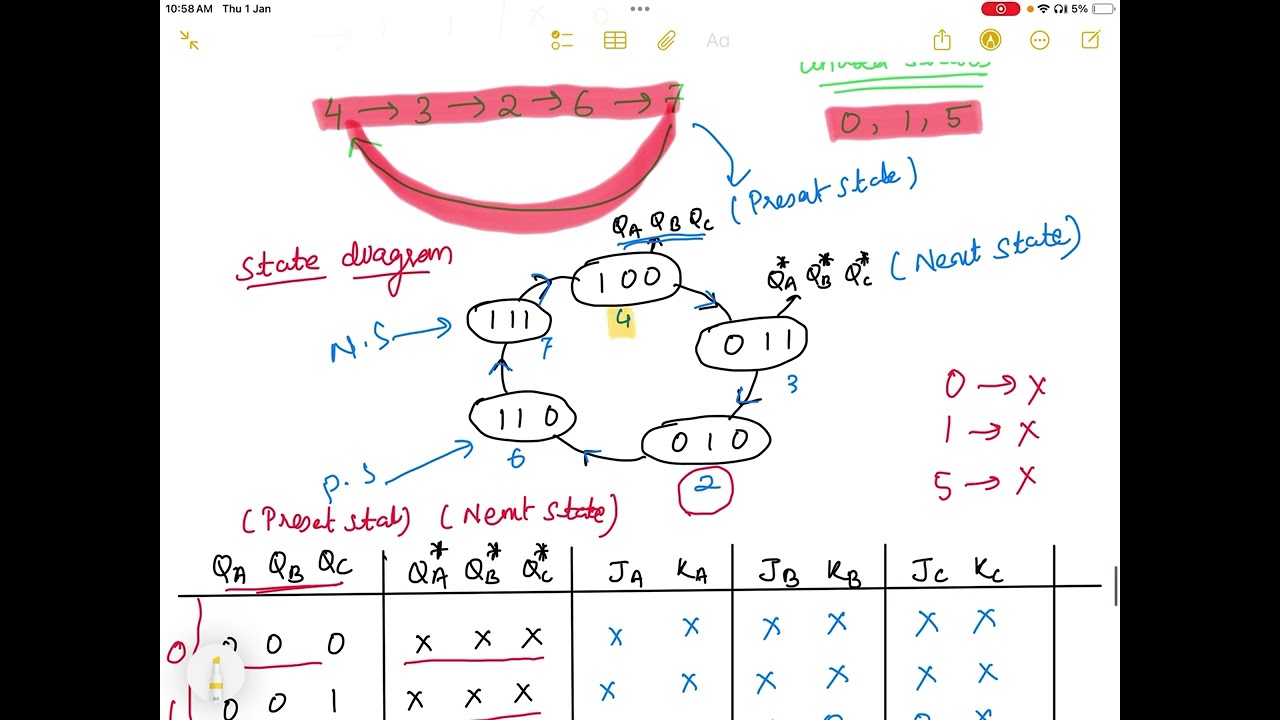 10:58 AM Thu 1 Jan
5%
Aa
4 → 3 → 2 → 6 → 7
0, 1, 5
QA QB QC (Present State)
State diagram
1 0 0
4
QA* QB* QC* (Nemt State)
N.S → 1 1 1
7
0 1 1
3
0 → x
1 → x
5 → x
1 1 0
6
0 1 0
2
P.S
(Present stat) (Nemt State)
QA QB QC QA* QB* QC* JA KA JB KB JC KC
0 0 0 0 x x x x x x x x x
1 0 0 1 x x x x x x x x